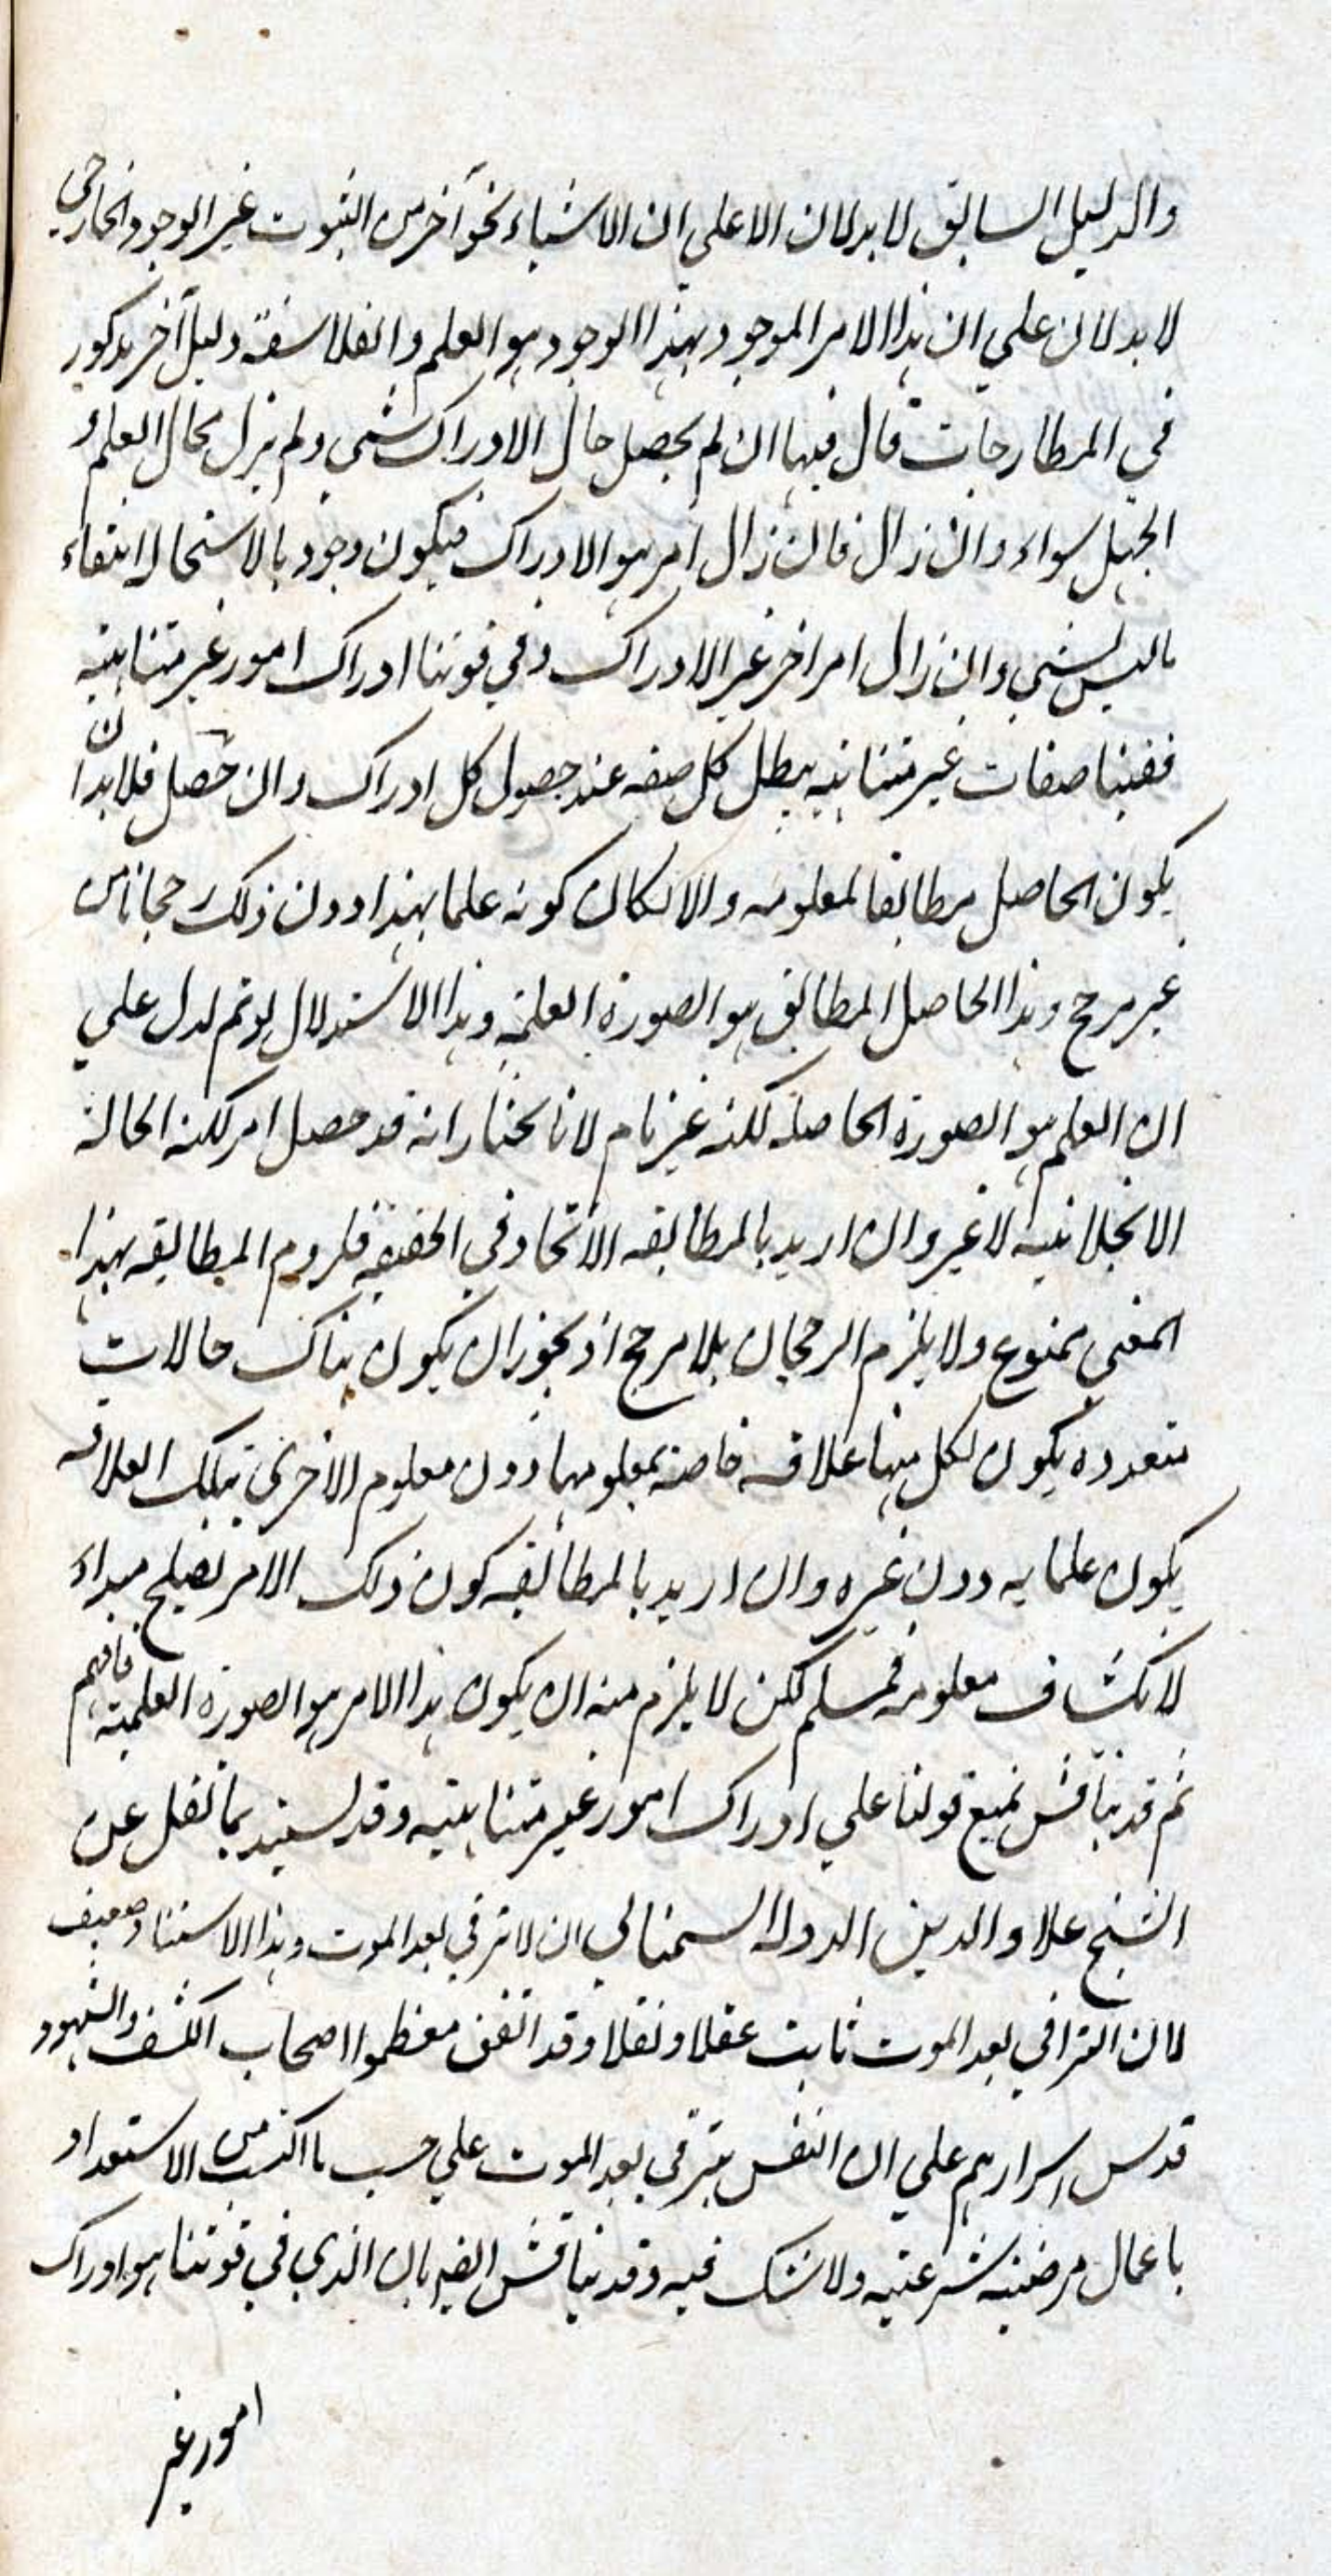 والدليل السابق لا يدلان الا علي ان الاشياء نحوا آخر من الثبوت غير الوجود الخارجي
لا يدلان علي ان هذا الامر الموجود بهذا الوجود هو العلم والفلاسفة دليل آخر مذكور
في المطارحات قال فيها ان لم يحصل حال الادراك شي ولم يزل فحال العلم و
الجهل سواء وان زال فان زال امر هو الادراك فيكون وجود بالاستحالة انتفاء
ما ليس بشي وان زال امر اخر غير الادراك وفي قوتنا ادراك امور غير متناهيه
ففينا صفات غير متناهيه يبطل كل صفه عند حصول كل ادراك وان حصل فلا بد ان
يكون الحاصل مطابقا لمعلومه والا لكان كونه علما بهذا دون ذلك رجحانا من
غير مرجح وهذا الحاصل المطابق هو الصورة العلميه وهذا الاستدلال لو تم لدل علي
ان العلم هو الصورة الحاصله لكنه غير تام لانا نختار انه قد حصل امر لكنه الحالة
الانجلائيه لا غير وان اريد بالمطابقه الاتحاد في الحقيقه فلزوم المطابقه بهذا
المعني ممنوع ولا يلزم الرجحان بلا مرجح اذ يجوز ان يكون هناك حالات
متعدده يكون لكل منها علاقه خاصة بمعلومها دون معلوم الاخرى بتلك العلاقه
يكون علما به دون غيره وان اريد بالمطابقه كون ذلك الامر يصلح مبداء
لانكشاف معلومه فمسلم لكن لا يلزم منه ان يكون هذا الامر هو الصورة العلمية فافهم
ثم قد يناقش بمنع قولنا علي ادراك امور غير متناهيه وقد يستند بما نقل عن
الشيخ علاو الدين الدولة السمناني ان لا ترقي بعد الموت وهذا الاستناد ضعيف
لان الترافي بعد الموت ثابت عقلا ونقلا وقد اتفق معظموا اصحاب الكشف والشهود
قدس اسرارهم علي ان النفس يترقي بعد الموت علي حسب ما اكتسب من الاستعداد
باعمال مرضيه شرعيه ولا شك فيه وقد يناقش ايضا بان الذي في قوتنا هو ادراك
امور غير